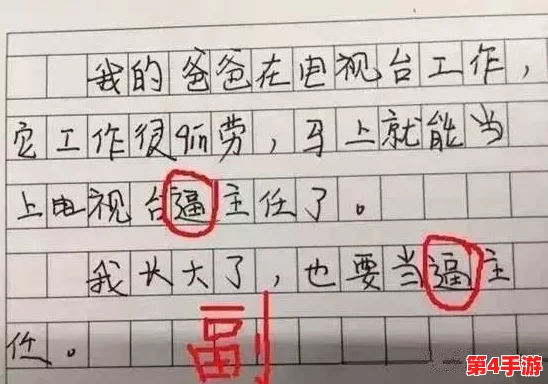 我的爸爸在电视台工作，
它工作很qin劳，马上就能当
上电视台逼主任了。
我长大了，也要当逼主
任。
副
第4手游